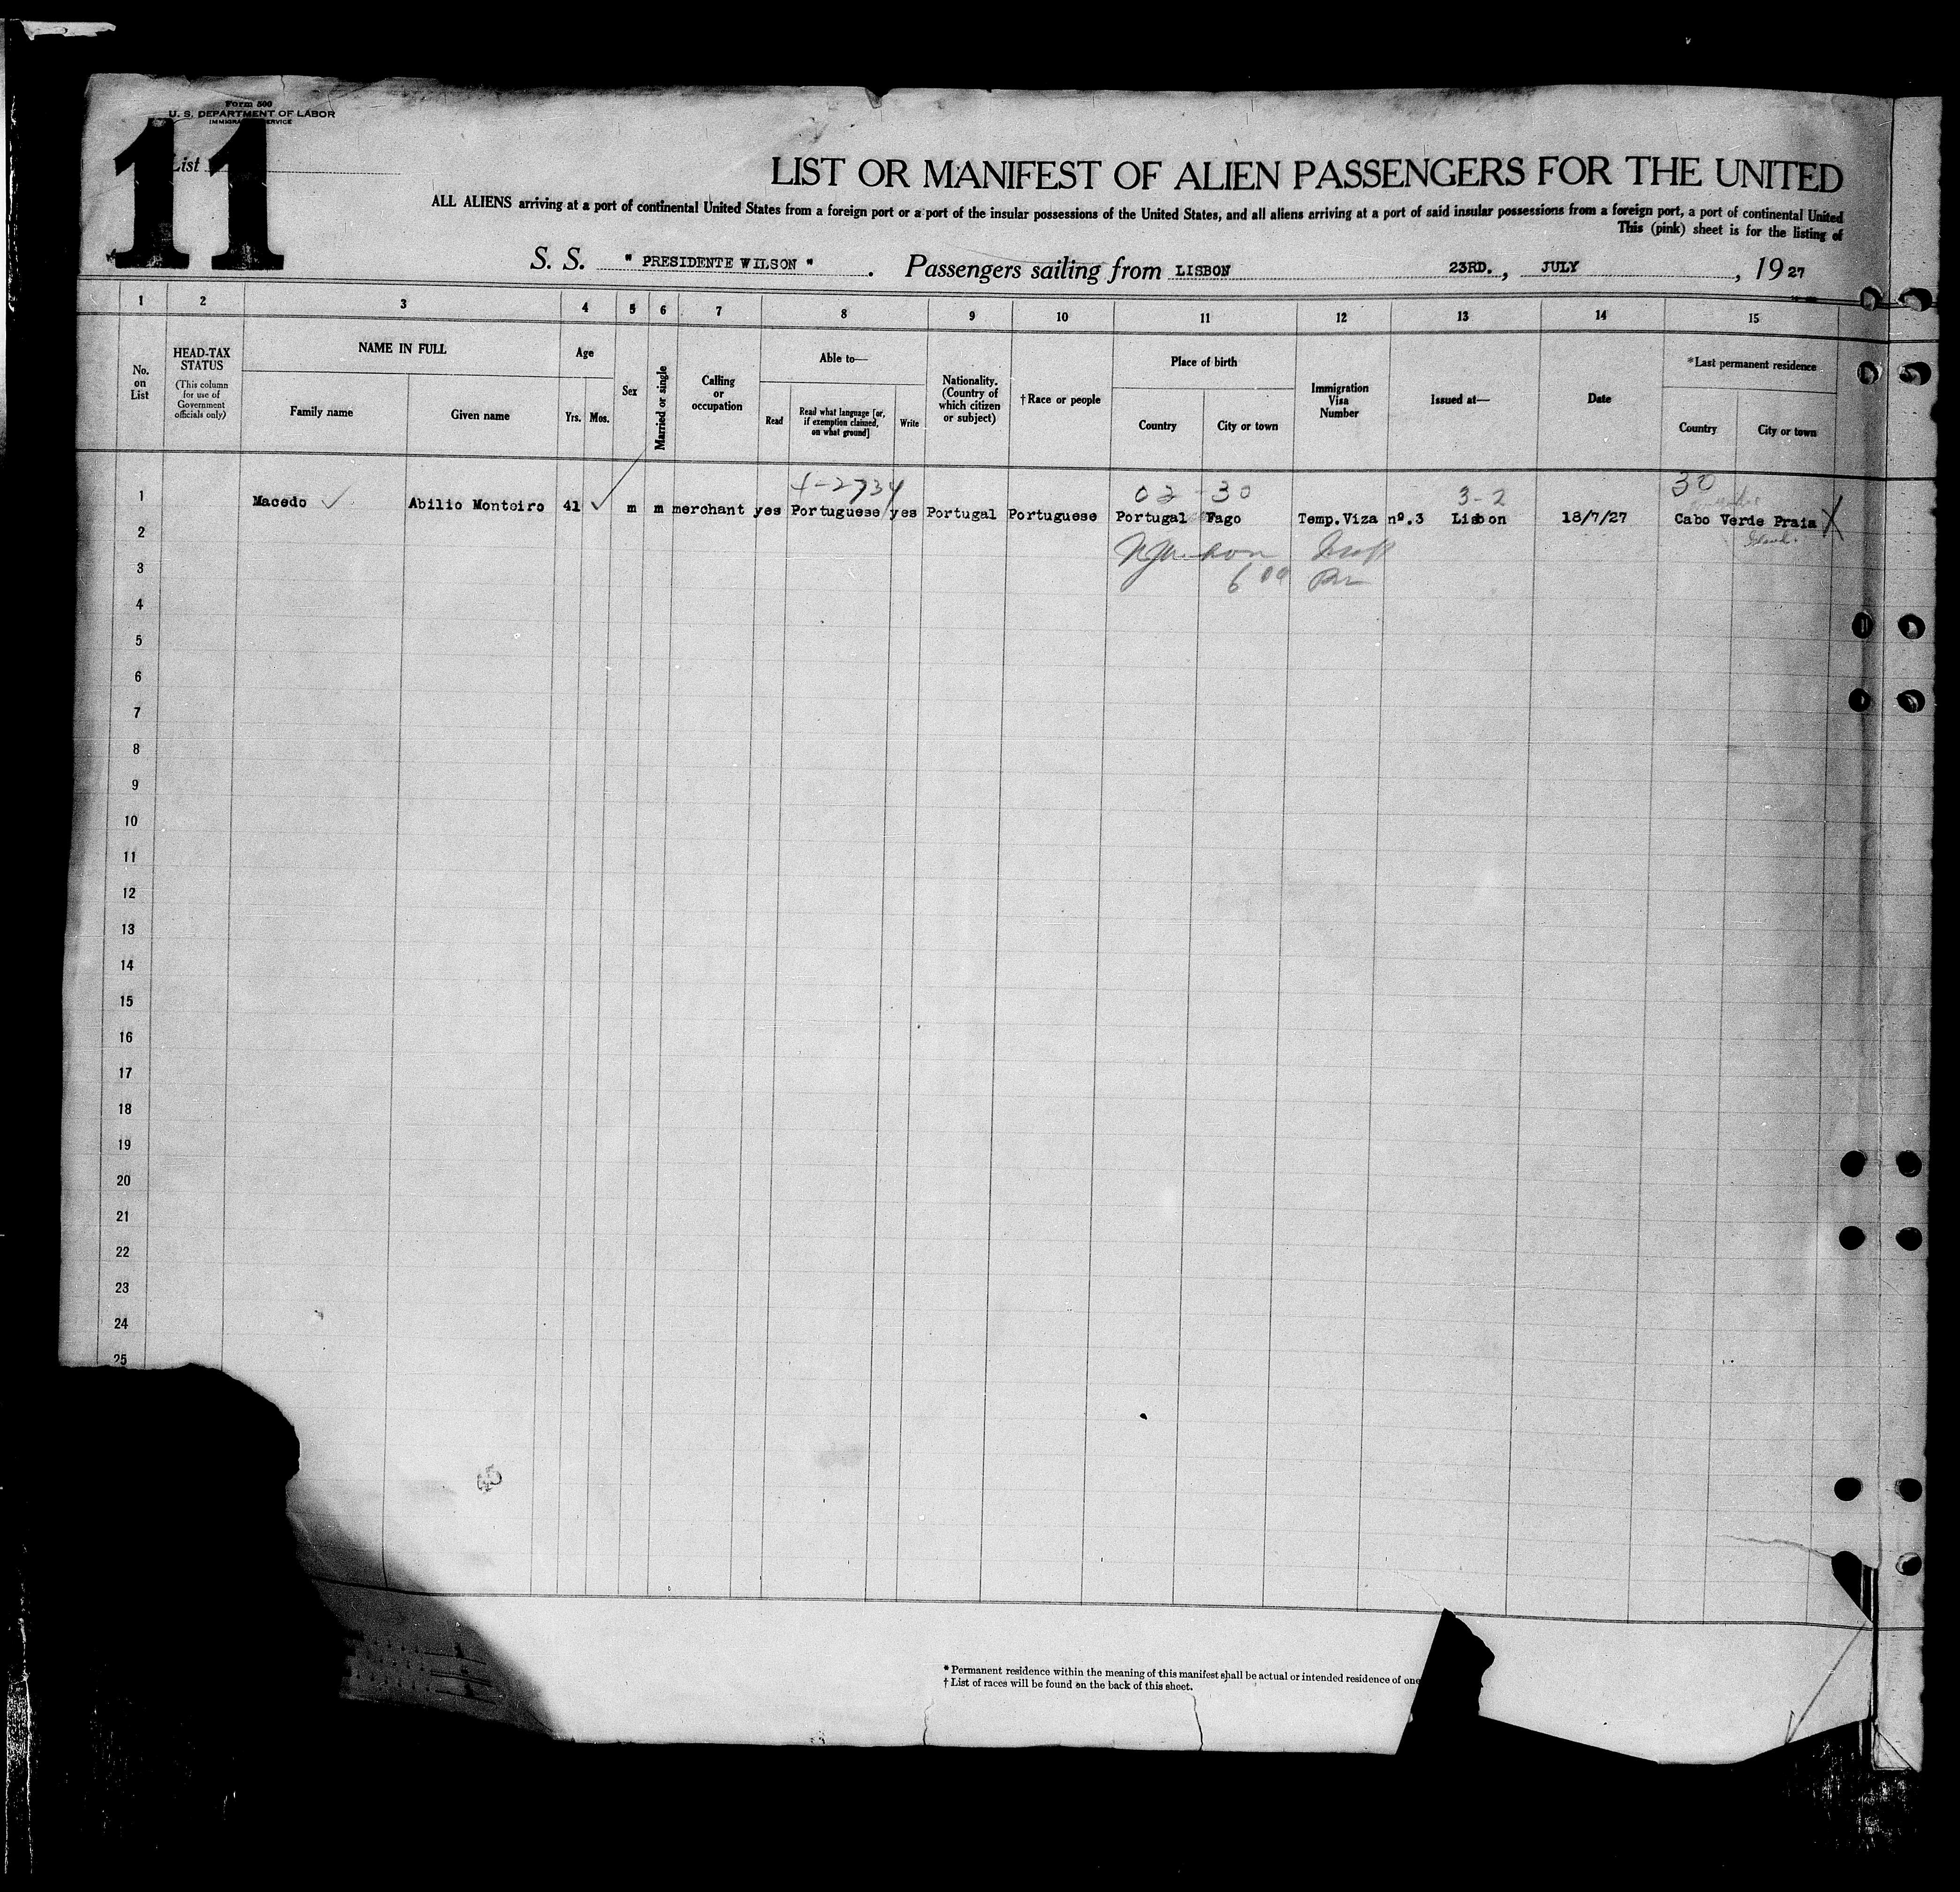 Form 500
U. S. DEPARTMENT OF LABOR
IMMIGRATION SERVICE
List
11
LIST OR MANIFEST OF ALIEN PASSENGERS FOR THE UNITED
ALL ALIENS arriving at a port of continental United States from a foreign port or a port of the insular possessions of the United States, and all aliens arriving at a port of said insular possessions from a foreign port, a port of continental United
This (pink) sheet is for the listing of
S. S. " PRESIDENTE WILSON " . Passengers sailing from LISBON 23RD. , JULY , 1927
1 2 3 4 5 6 7 8 9 10 11 12 13 14 15
No. on List
HEAD-TAX STATUS
(This column for use of Government officials only)
NAME IN FULL
Family name
Given name
Age
Yrs.
Mos.
Sex
Married or single
Calling or occupation
Able to—
Read
Read what language [or, if exemption claimed, on what ground]
Write
Nationality. (Country of which citizen or subject)
†Race or people
Place of birth
Country
City or town
Immigration Visa Number
Issued at—
Date
*Last permanent residence
Country
City or town
02 - 30 3-2 30
1 Macedo Abilio Monteiro 41 m m merchant yes Portuguese yes Portugal Portuguese Portugal Fago Temp.Viza nº.3 Lisbon 18/7/27 Cabo Verde Praia X
2
3
4
5
6
7
8
9
10
11
12
13
14
15
16
17
18
19
20
21
22
23
24
25
* Permanent residence within the meaning of this manifest shall be actual or intended residence of one
† List of races will be found on the back of this sheet.